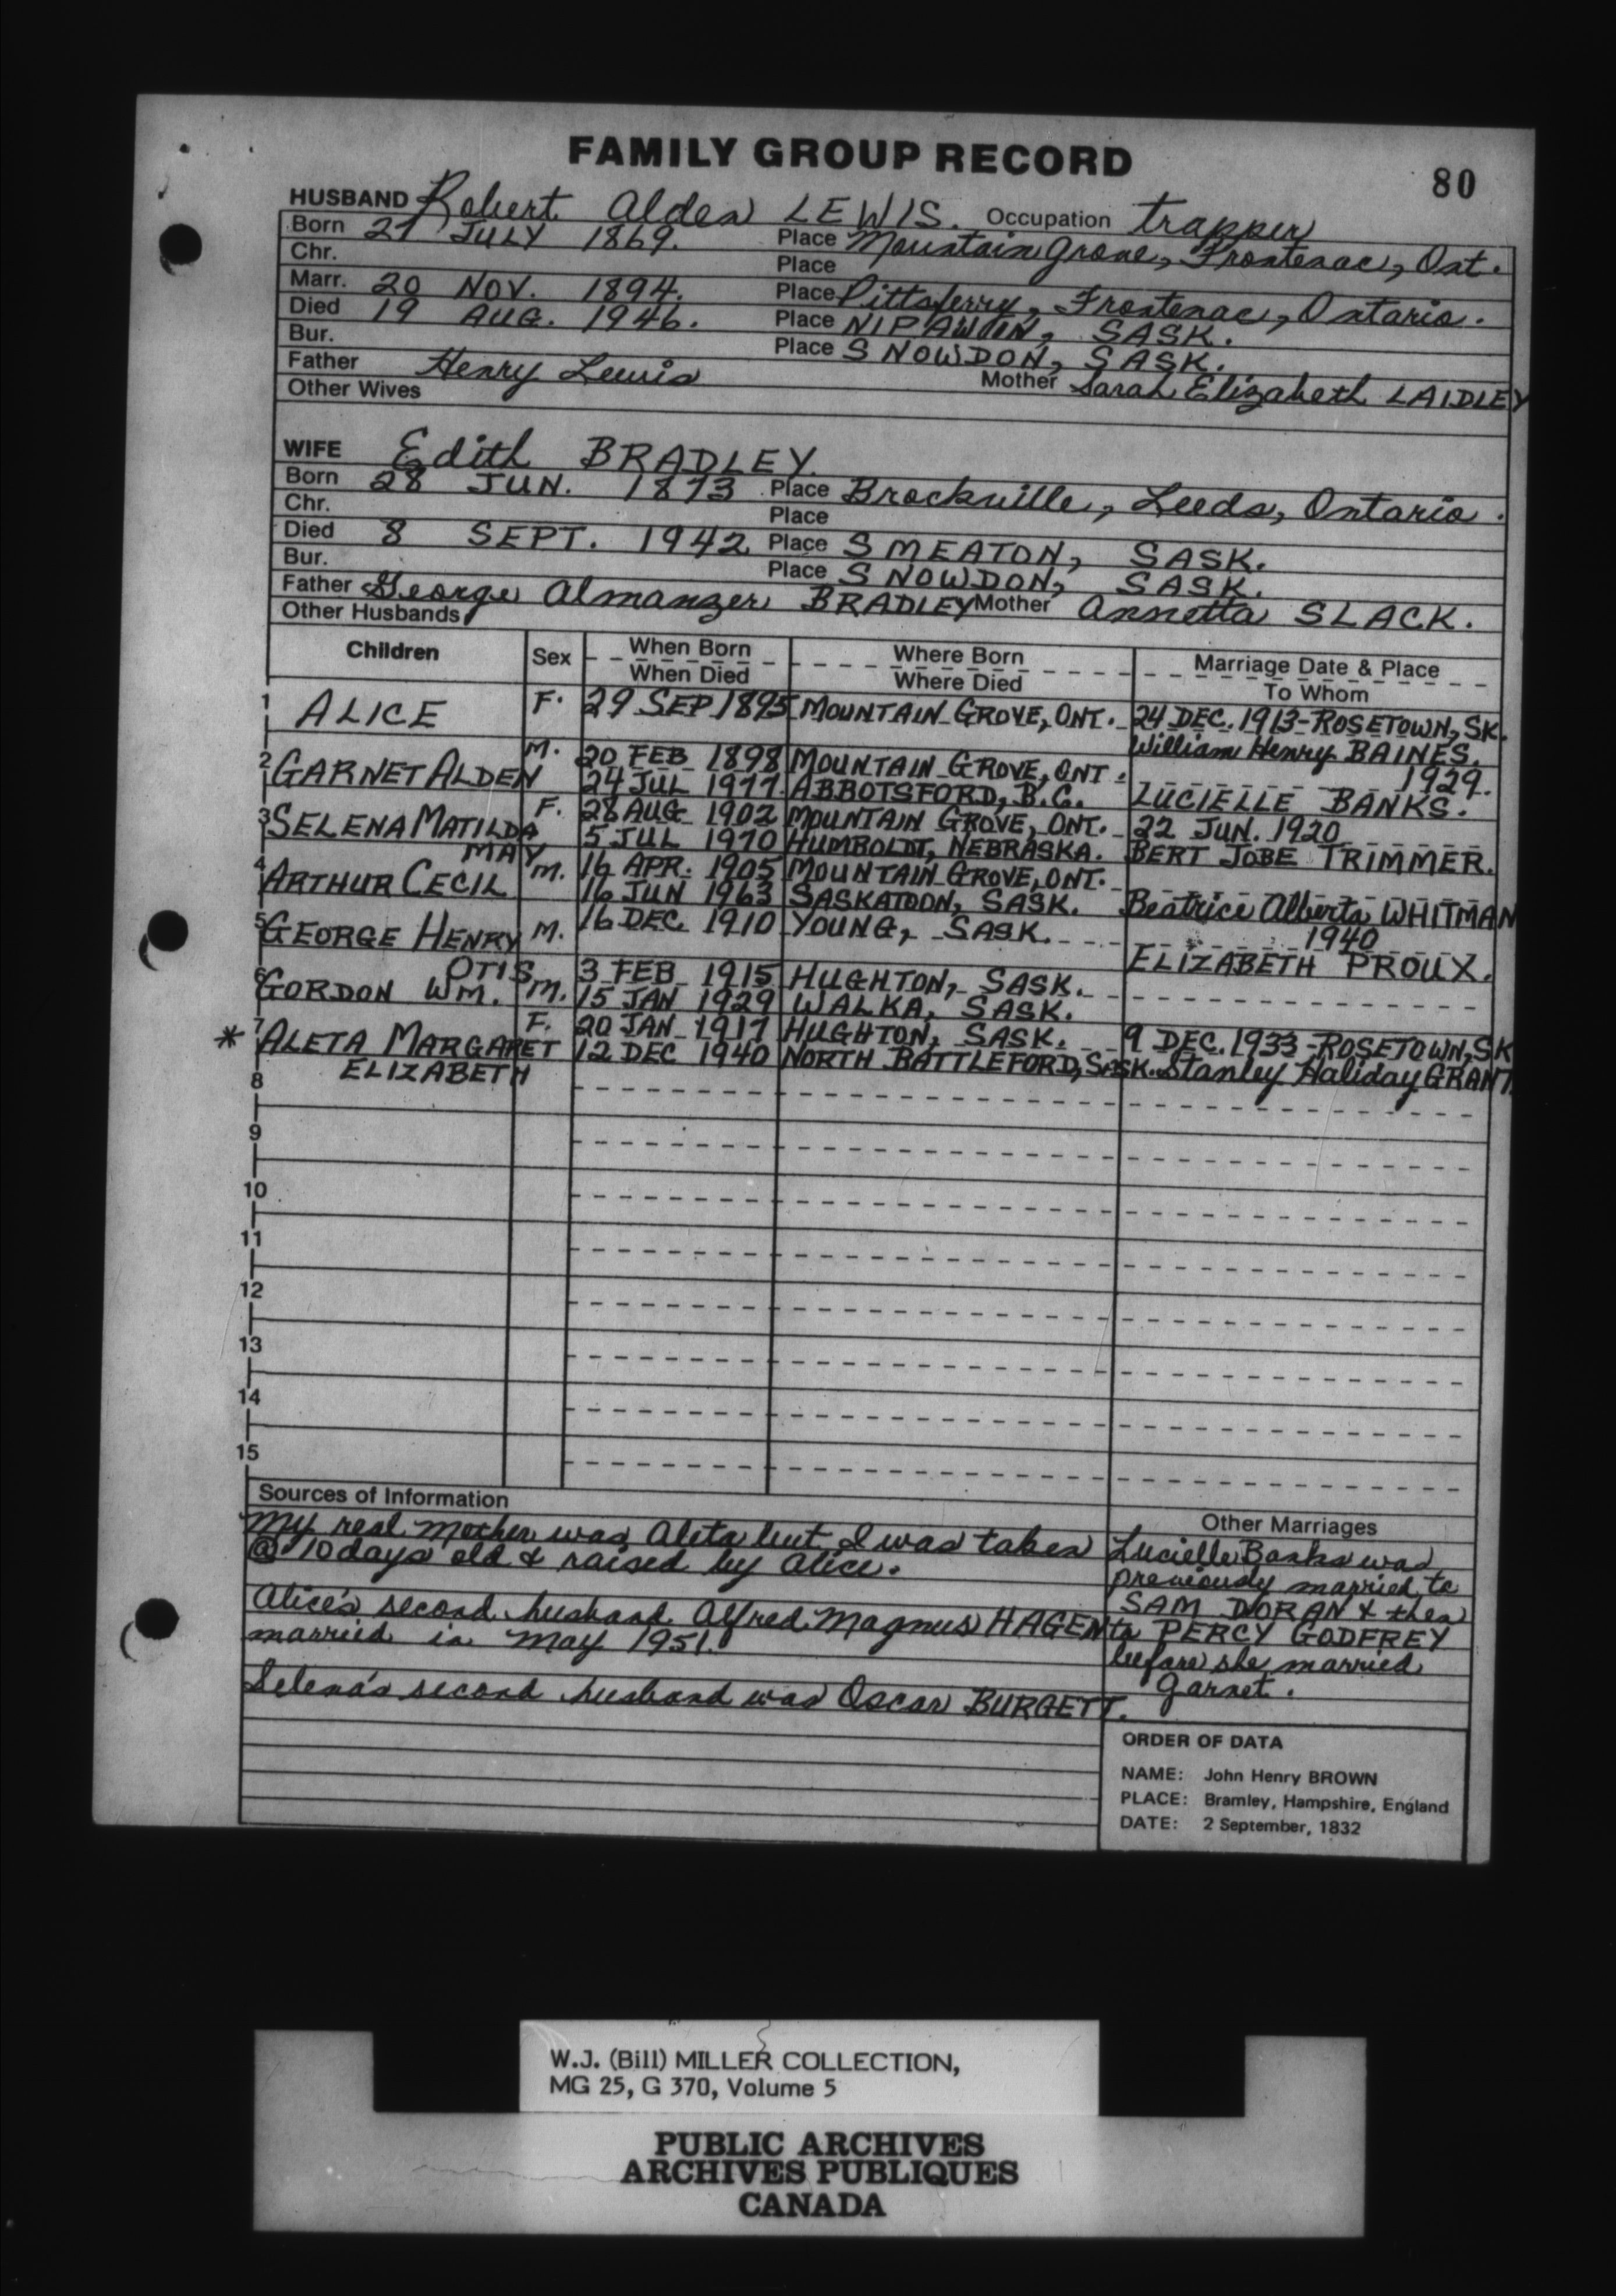 FAMILY GROUP RECORD
80
HUSBAND Robert Alden LEWIS. Occupation trapper
Born 27 JULY 1869. Place Mountain Grove, Frontenac, Ont.
Chr. Place
Marr. 20 NOV. 1894. Place Pittsferry, Frontenac, Ontario.
Died 19 AUG. 1946. Place NIPAWIN, SASK.
Bur. Place SNOWDON, SASK.
Father Henry Lewis Mother Sarah Elizabeth LAIDLEY
Other Wives
WIFE Edith BRADLEY.
Born 28 JUN. 1873 Place Brockville, Leeds, Ontario.
Chr. Place
Died 8 SEPT. 1942 Place SMEATON, SASK.
Bur. Place SNOWDON, SASK.
Father George Almanzer BRADLEY Mother Annetta SLACK.
Other Husbands
Children Sex When Born Where Born Marriage Date & Place
When Died Where Died To Whom
1 ALICE F. 29 SEP 1895 MOUNTAIN GROVE, ONT. 24 DEC. 1913-ROSETOWN, SK.
William Henry BAINES.
2 GARNET ALDEN M. 20 FEB 1898 MOUNTAIN GROVE, ONT. 1929.
24 JUL 1977. ABBOTSFORD, B.C. LUCIELLE BANKS.
3 SELENA MATILDA F. 28 AUG 1902 MOUNTAIN GROVE, ONT. 22 JUN. 1920
MAY 5 JUL 1970 HUMBOLDT, NEBRASKA. BERT JOBE TRIMMER.
4 ARTHUR CECIL M. 16 APR. 1905 MOUNTAIN GROVE, ONT.
16 JUN 1963 SASKATOON, SASK. Beatrice Alberta WHITMAN
5 GEORGE HENRY M. 16 DEC. 1910 YOUNG, SASK. 1940
OTIS ELIZABETH PROUX.
6 GORDON WM. M. 3 FEB 1915 HUGHTON, SASK.
15 JAN 1929 WALKA, SASK.
* 7 ALETA MARGARET F. 20 JAN 1917 HUGHTON, SASK. 9 DEC. 1933-ROSETOWN, SK
ELIZABETH 12 DEC 1940 NORTH BATTLEFORD, SASK. Stanley Haliday GRANT.
8
9
10
11
12
13
14
15
Sources of Information
My real mother was Aleta but I was taken
@ 10 days old & raised by Alice.
Alice's second husband Alfred Magnus HAGEN
married in May 1951.
Selena's second husband was Oscar BURGETT.
Other Marriages
Lucielle Banks was
previously married to
SAM DORAN & then
to PERCY GODFREY
before she married
Garnet.
ORDER OF DATA
NAME: John Henry BROWN
PLACE: Bramley, Hampshire, England
DATE: 2 September, 1832
W.J. (Bill) MILLER COLLECTION,
MG 25, G 370, Volume 5
PUBLIC ARCHIVES
ARCHIVES PUBLIQUES
CANADA